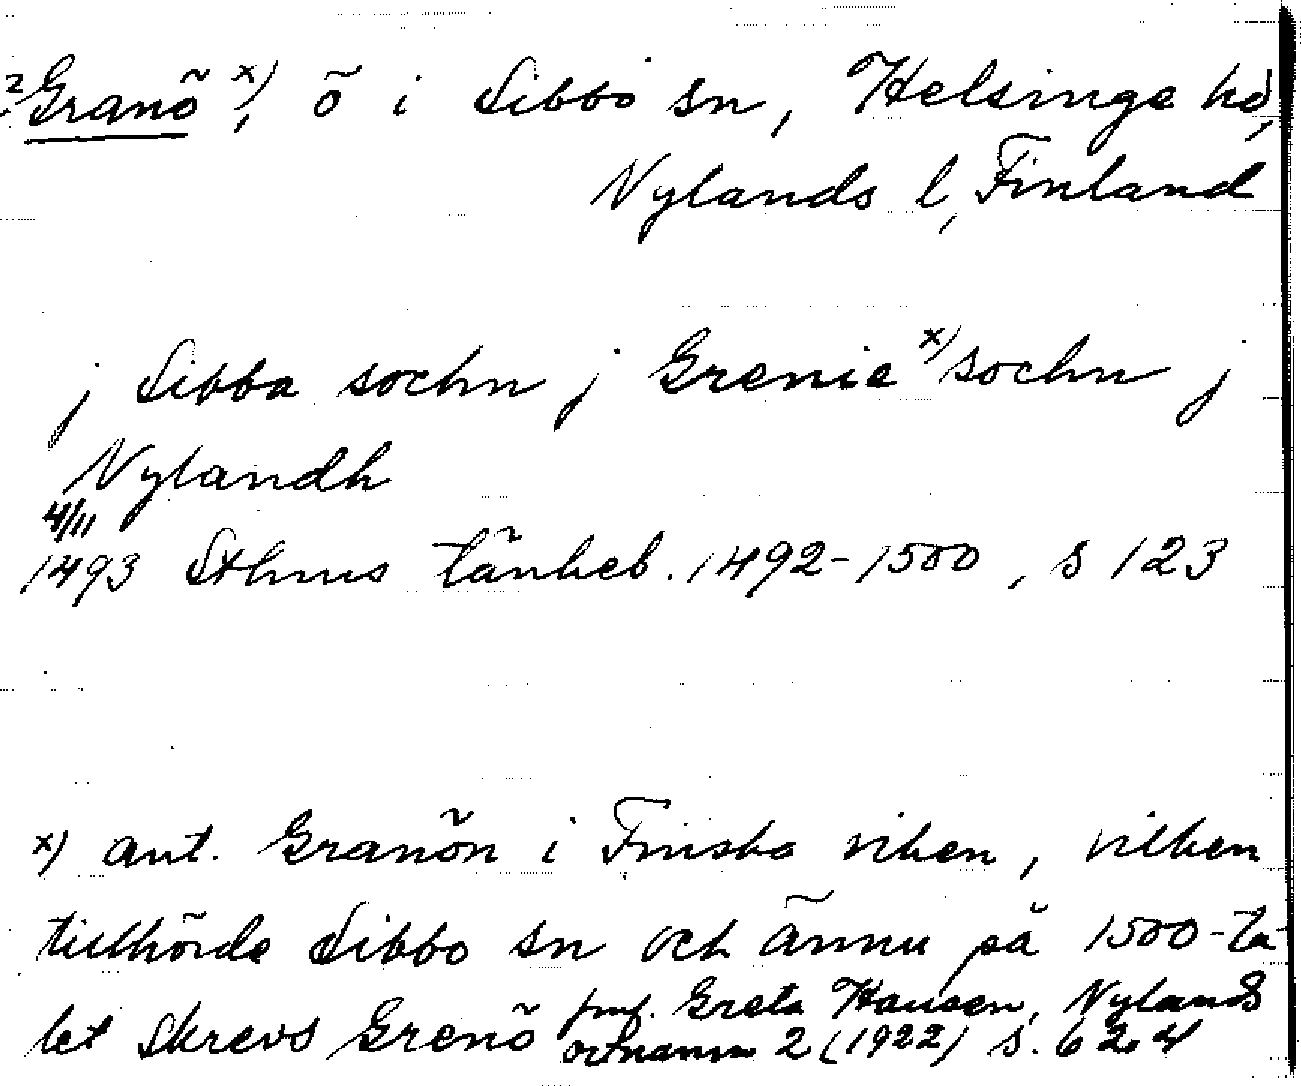 ?Granö x), ö i Sibbo sn, Helsinge hd,
Nylands l, Finland
j Sibba sochn j Grenie x) sochn j
Nylandh
4/11
1493 Sthms tänkeb. 1492-1500, s 123
x) ant. Granön i Finska viken, vilken
tillhörde Sibbo sn och ännu på 1500-ta-
let skrevs Grenö jmf. Greta Hausen, Nylands
ortnamn 2 (1922) s. 624